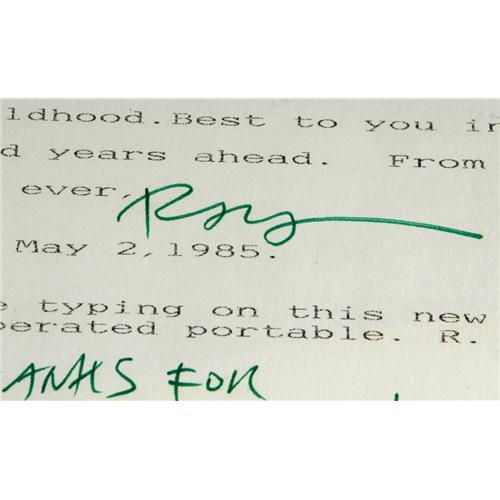 ldhood.Best to you in
d years ahead.  From
ever, Ray
May 2,1985.
e typing on this new
perated portable. R.
ANKS FOR